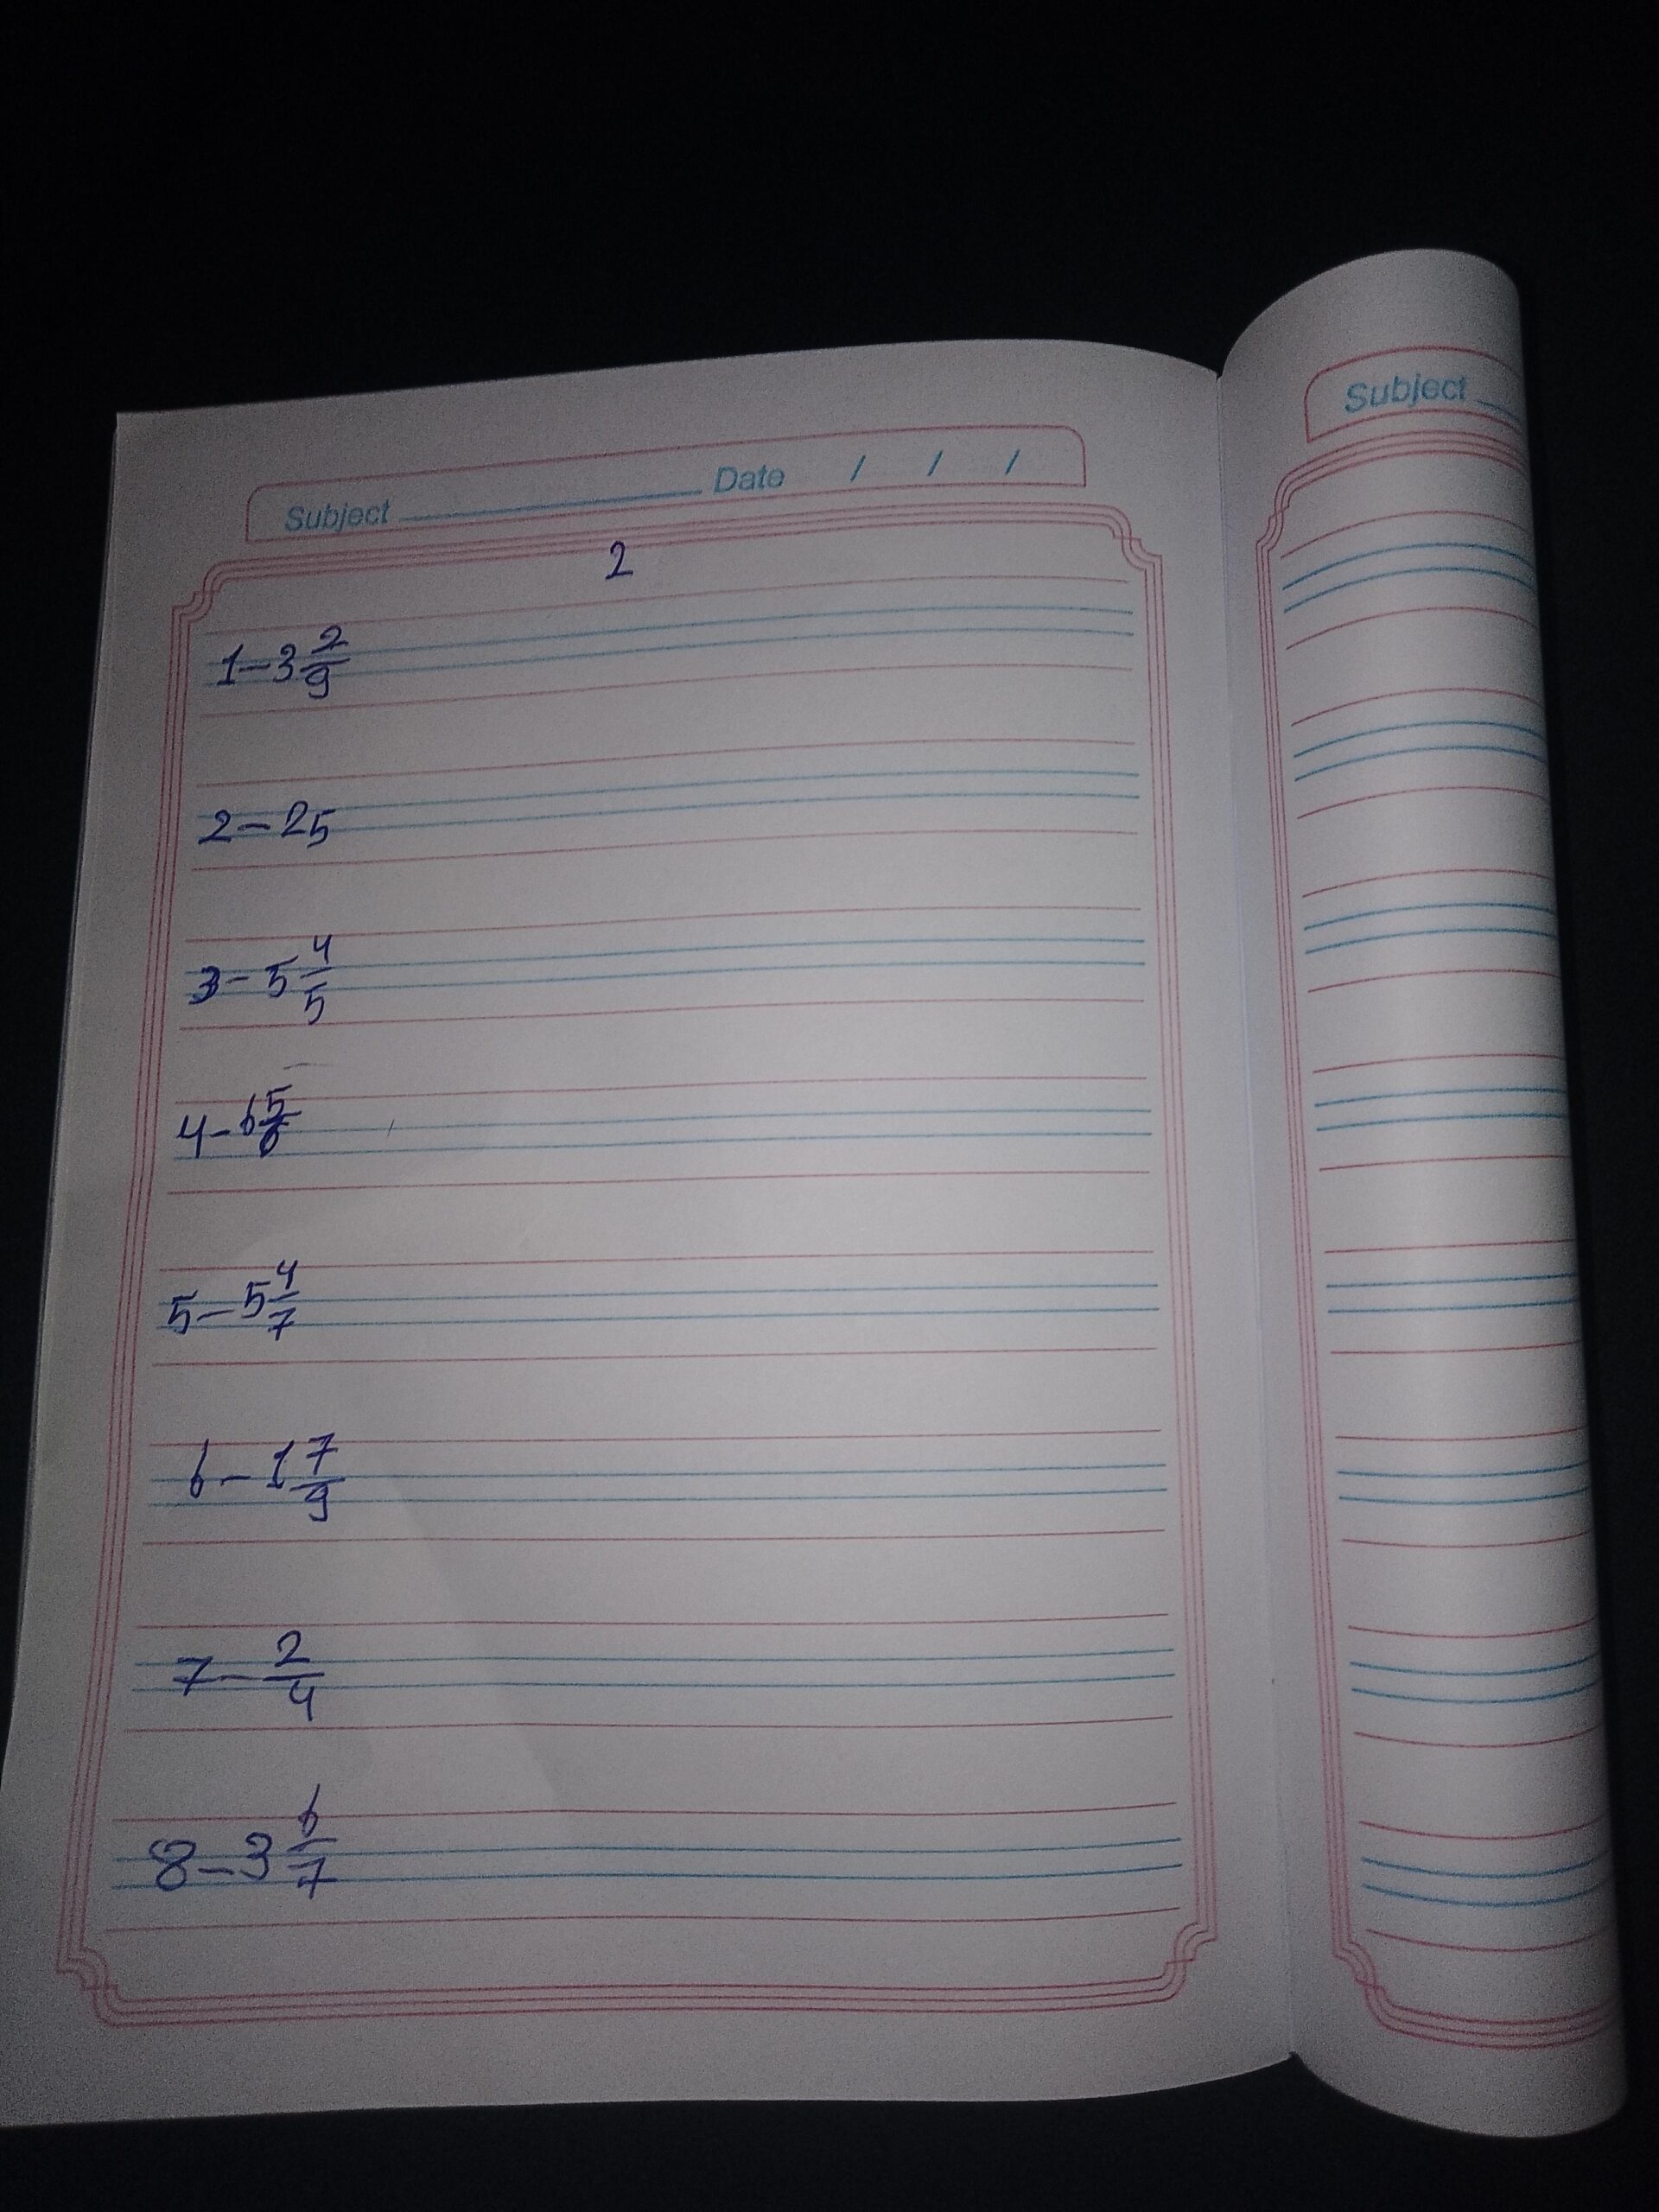 Subject Date / / /
Subject
2
1-3 2/9
2-25
3-5 4/5
4-6 5/6
5-5 4/7
6-1 7/9
7-2/4
8-3 6/7